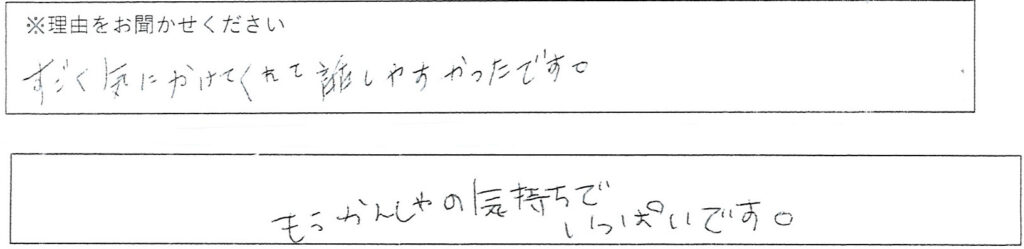 ※理由をお聞かせください
すごく気にかけてくれて話しやすかったです。
もうかんしゃの気持ちで
いっぱいです。